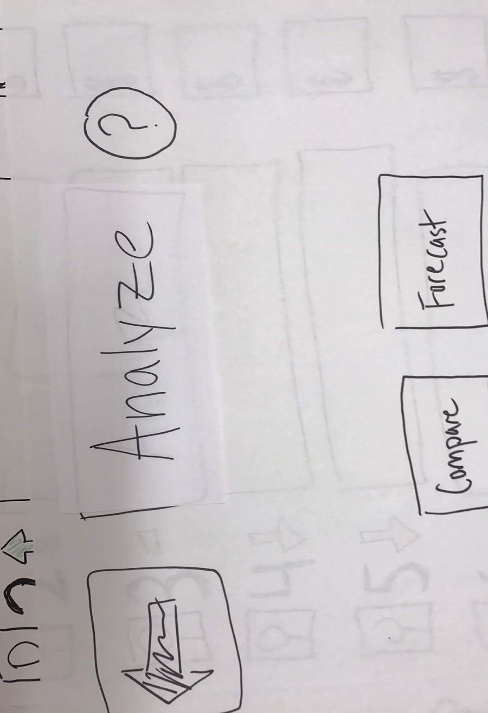 Analyze ?
Compare Forecast
3
4
5